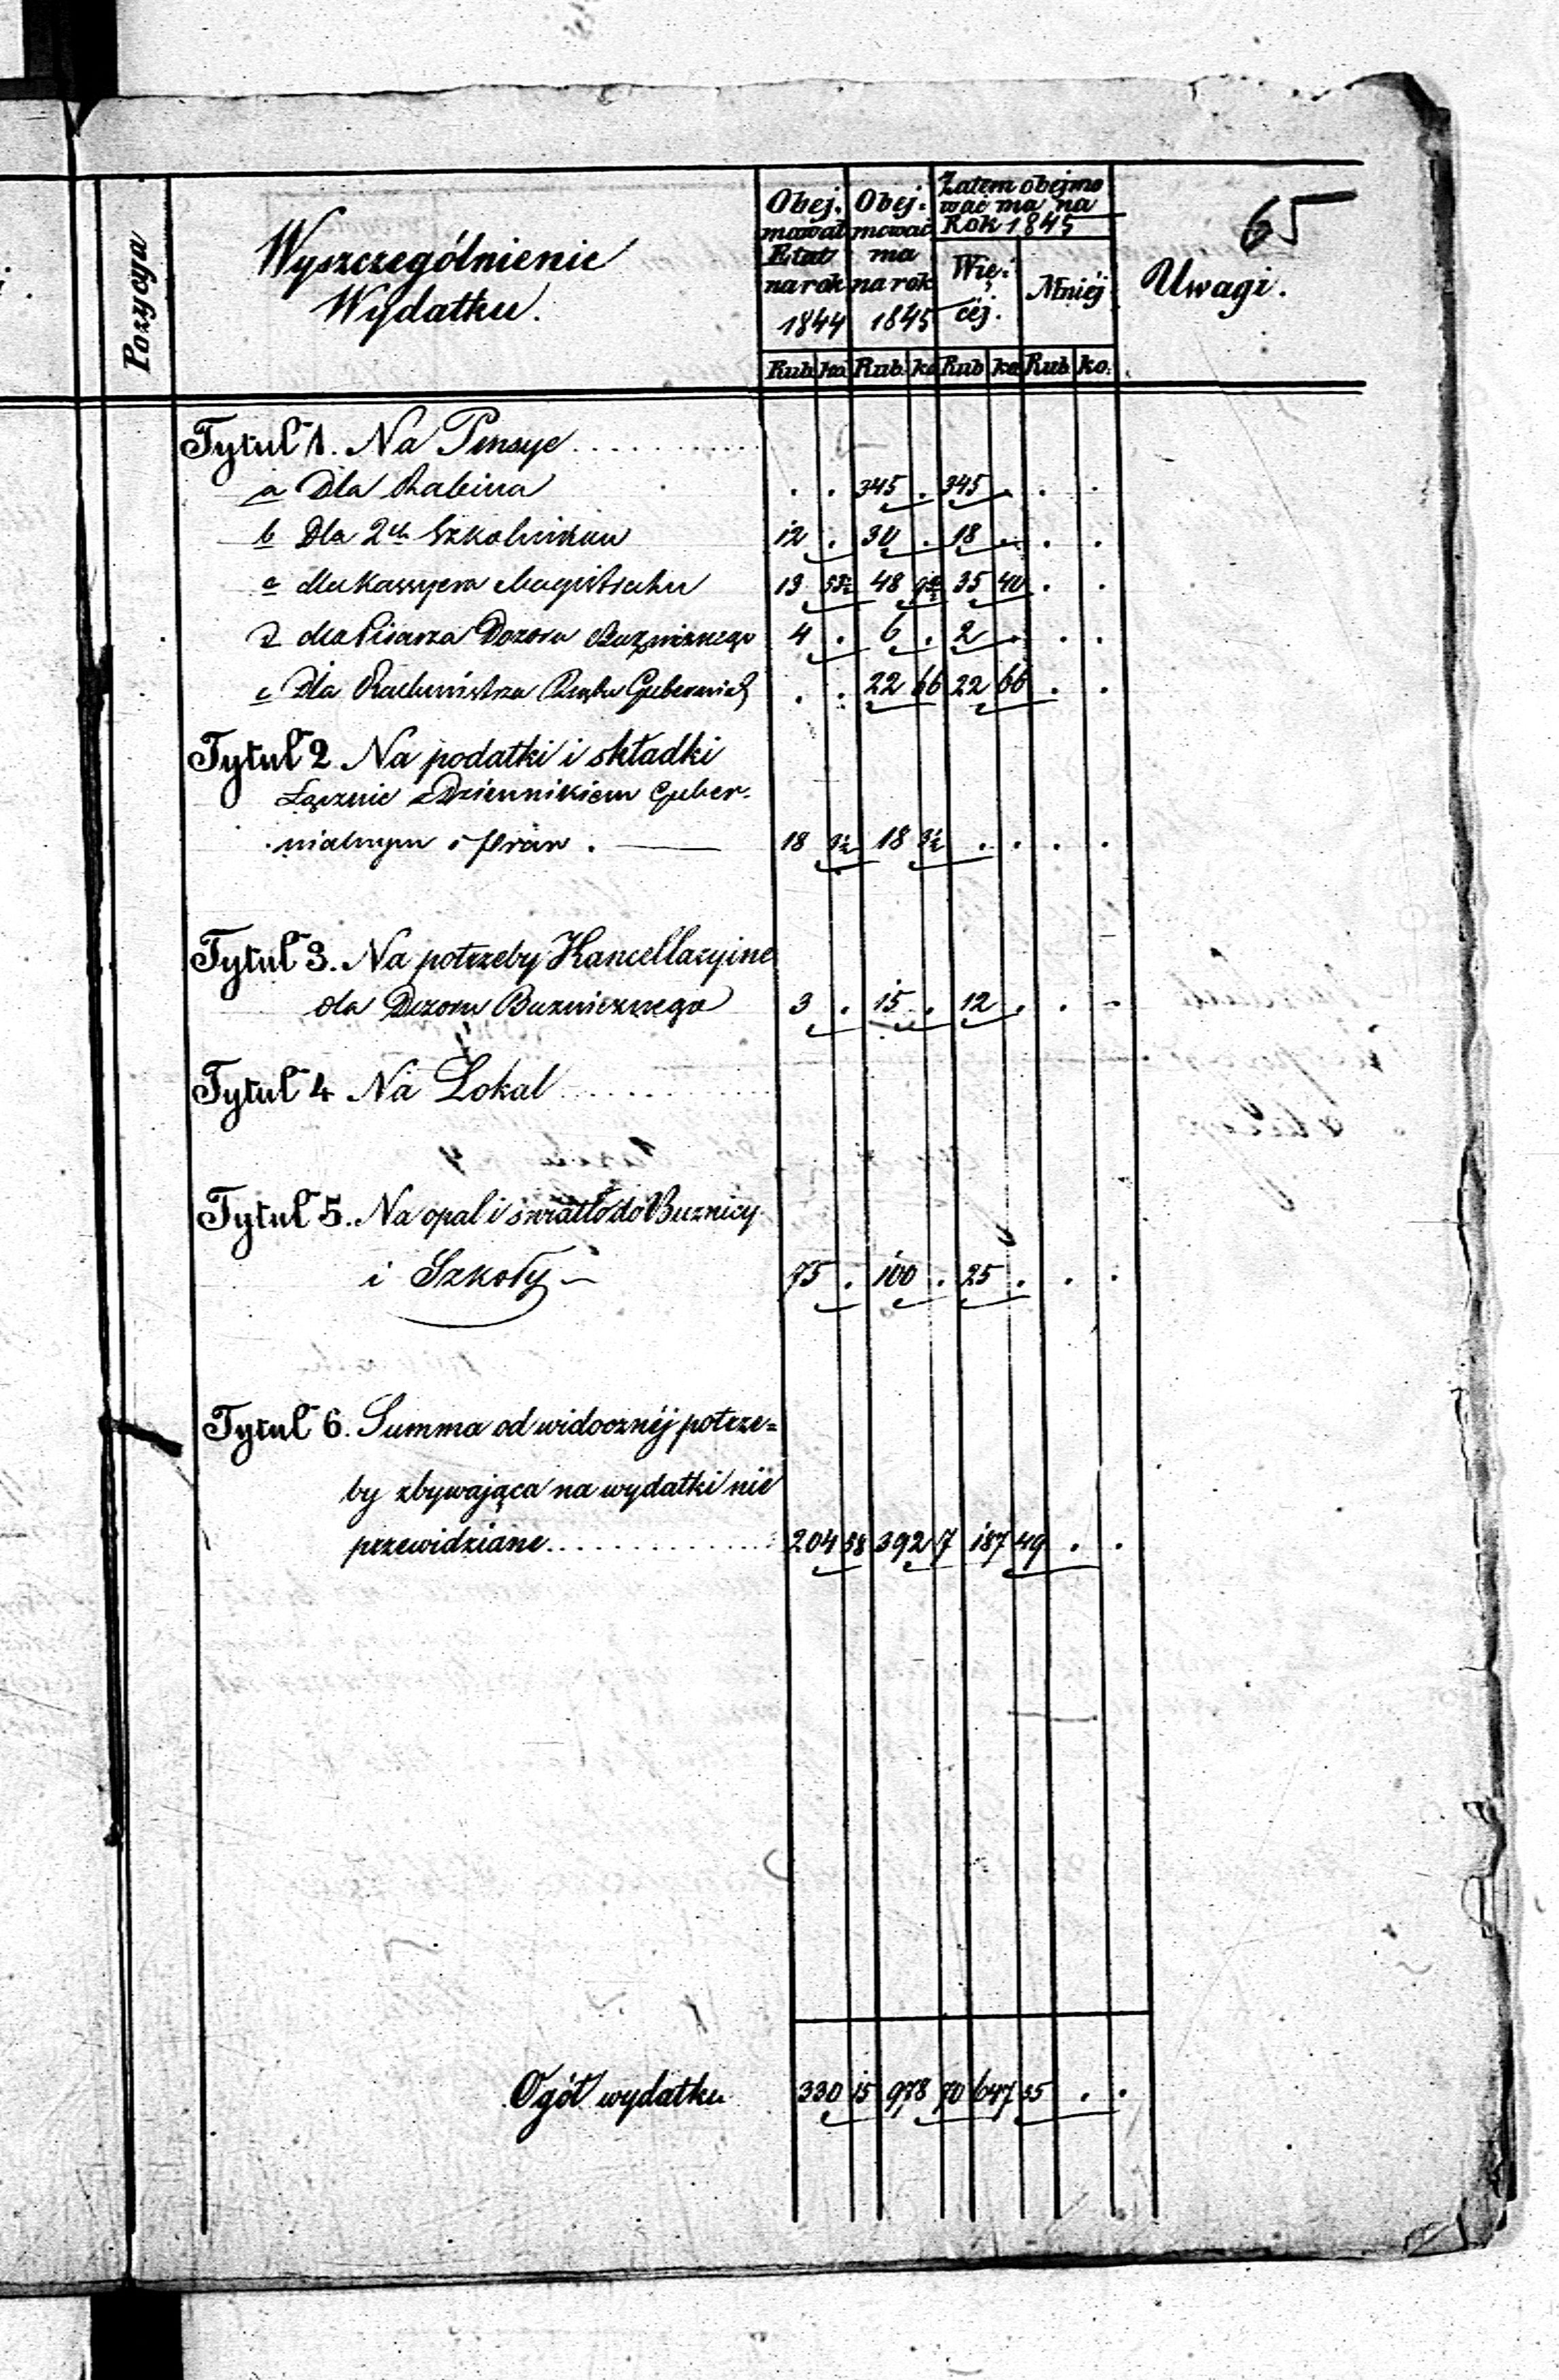 65
Pozycya
Wyszczególnienie
Wydatku.
Obej-
mował
Etat
na rok
1844
Obej-
mować
ma
na rok
1845
Zatem obejmo
wać ma na
Rok 1845
Wię-
cej.
Mniéj
Uwagi.
Rub ko Rub. ko Rub ko Rub ko.
Tytuł 1. Na Pensye
a Dla Rabina . . 345 . 345 . . .
b Dla 2ch Szkolników 12 . 30 . 18 . . .
c dla Kassyera Magistratu 13 53½ 48 93½ 35 40 . .
d dla Pisarza Dozoru Bużnicznego 4 . 6 . 2 . . .
e Dla Rachmistrza Rządu Gubernial . . 22 66 22 66 . .
Tytuł 2. Na podatki i składki
Łącznie z Dziennikiem Guber-
nialnym i Praw. 18 3½ 18 3½ . . . .
Tytuł 3. Na potrzeby Kancellaryine
dla Dozoru Buzniczнego 3 . 15 . 12 . . .
Tytuł 4 Na Lokal
Tytuł 5. Na opal i światło do Buznicy
i Szkoły 75 . 100 . 25 . . .
Tytuł 6. Summa od widocznéj potrze=
by zbywająca na wydatki nie
przewidziane 204 58 392 7 187 49 . .
Ogół wydatku 330 15 978 70 647 55 . .